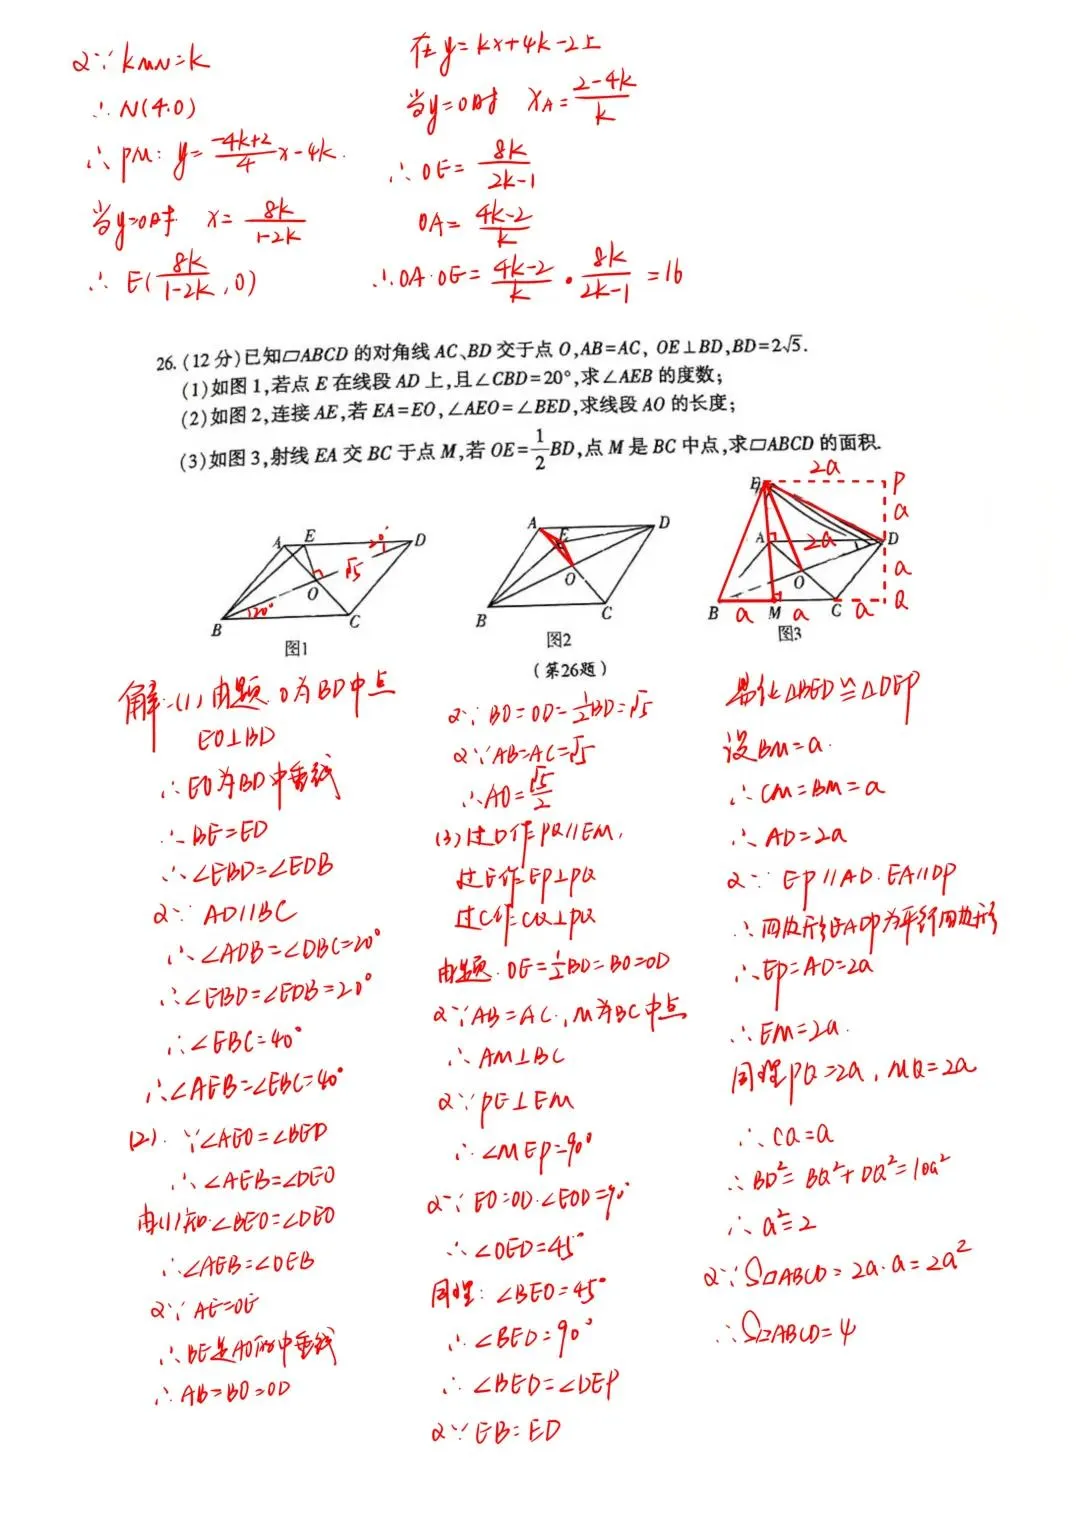 又∵kMN=k
∴N(4.0)
∴PM: y=\frac{-4k+2}{4}x-4k.
当y=0时 x=\frac{8k}{1-2k}
∴E(\frac{8k}{1-2k},0)
在y=kx+4k-2上
当y=0时 x_A=\frac{2-4k}{k}
∴OE=\frac{8k}{2k-1}
OA=\frac{4k-2}{k}
∴OA·OE=\frac{4k-2}{k}·\frac{8k}{2k-1}=16
26.(12分)已知▱ABCD的对角线AC、BD交于点O,AB=AC, OE⊥BD,BD=2√5.
(1)如图1,若点E在线段AD上,且∠CBD=20°,求∠AEB的度数;
(2)如图2,连接AE,若EA=EO,∠AEO=∠BED,求线段AO的长度;
(3)如图3,射线EA交BC于点M,若OE=\frac{1}{2}BD,点M是BC中点,求▱ABCD的面积.
A E D 20° √5 O 20° B C
图1
A E D O B C
图2
(第26题)
E 2a P a A 2a D O a B a M a C a Q
图3
解:(1)由题.O为BD中点
EO⊥BD
∴EO为BD中垂线
∴BE=ED
∴∠EBD=∠EDB
又∵AD∥BC
∴∠ADB=∠DBC=20°
∴∠EBD=∠EDB=20°
∴∠EBC=40°
∴∠AEB=∠EBC=40°
(2).∵∠AEO=∠BED
∴∠AEB=∠DEO
由(1)知.∠BEO=∠DEO
∴∠AEB=∠OEB
又∵AE=OE
∴BE是AO的中垂线
∴AB=BO=OD
又∵BO=OD=\frac{1}{2}BD=√5
又∵AB=AC=√5
∴AO=\frac{√5}{2}
(3)过D作PQ∥EM,
过E作EP⊥PQ
过C作CQ⊥PQ
由题.OE=\frac{1}{2}BD=BO=OD
又∵AB=AC,M为BC中点
∴AM⊥BC
又∵PE⊥EM
∴∠MEP=90°
又∵EO=OD.∠EOD=90°
∴∠OED=45°
同理:∠BEO=45°
∴∠BED=90°
∴∠BED=∠DEP
又∵EB=ED
易化△BED≌△DEP
设BM=a.
∴CM=BM=a
∴AD=2a
又∵EP∥AD.EA∥DP
∴四边形EADP为平行四边形
∴EP=AD=2a
∴EM=2a.
同理PQ=2a,MQ=2a
∴CQ=a
∴BD²=BQ²+DQ²=10a²
∴a²=2
又∵S▱ABCD=2a·a=2a²
∴S▱ABCD=4